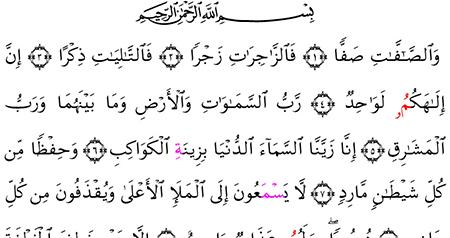 بِسْمِ ٱللَّهِ ٱلرَّحْمَٰنِ ٱلرَّحِيمِ
وَٱلصَّٰٓفَّٰتِ صَفًّا ﴿١﴾ فَٱلزَّٰجِرَٰتِ زَجْرًا ﴿٢﴾ فَٱلتَّٰلِيَٰتِ ذِكْرًا ﴿٣﴾ إِنَّ
إِلَٰهَكُمُۥ لَوَٰحِدٌ ﴿٤﴾ رَّبُّ ٱلسَّمَٰوَٰتِ وَٱلْأَرْضِ وَمَا بَيْنَهُمَا وَرَبُّ
ٱلْمَشَٰرِقِ ﴿٥﴾ إِنَّا زَيَّنَّا ٱلسَّمَآءَ ٱلدُّنْيَا بِزِينَةِ ٱلْكَوَاكِبِ ﴿٦﴾ وَحِفْظًا مِّن
كُلِّ شَيْطَٰنٍ مَّارِدٍ ﴿٧﴾ لَا يَسْمَعُونَ إِلَى ٱلْمَلَإِ ٱلْأَعْلَىٰ وَيُقْذَفُونَ مِن كُلِّ